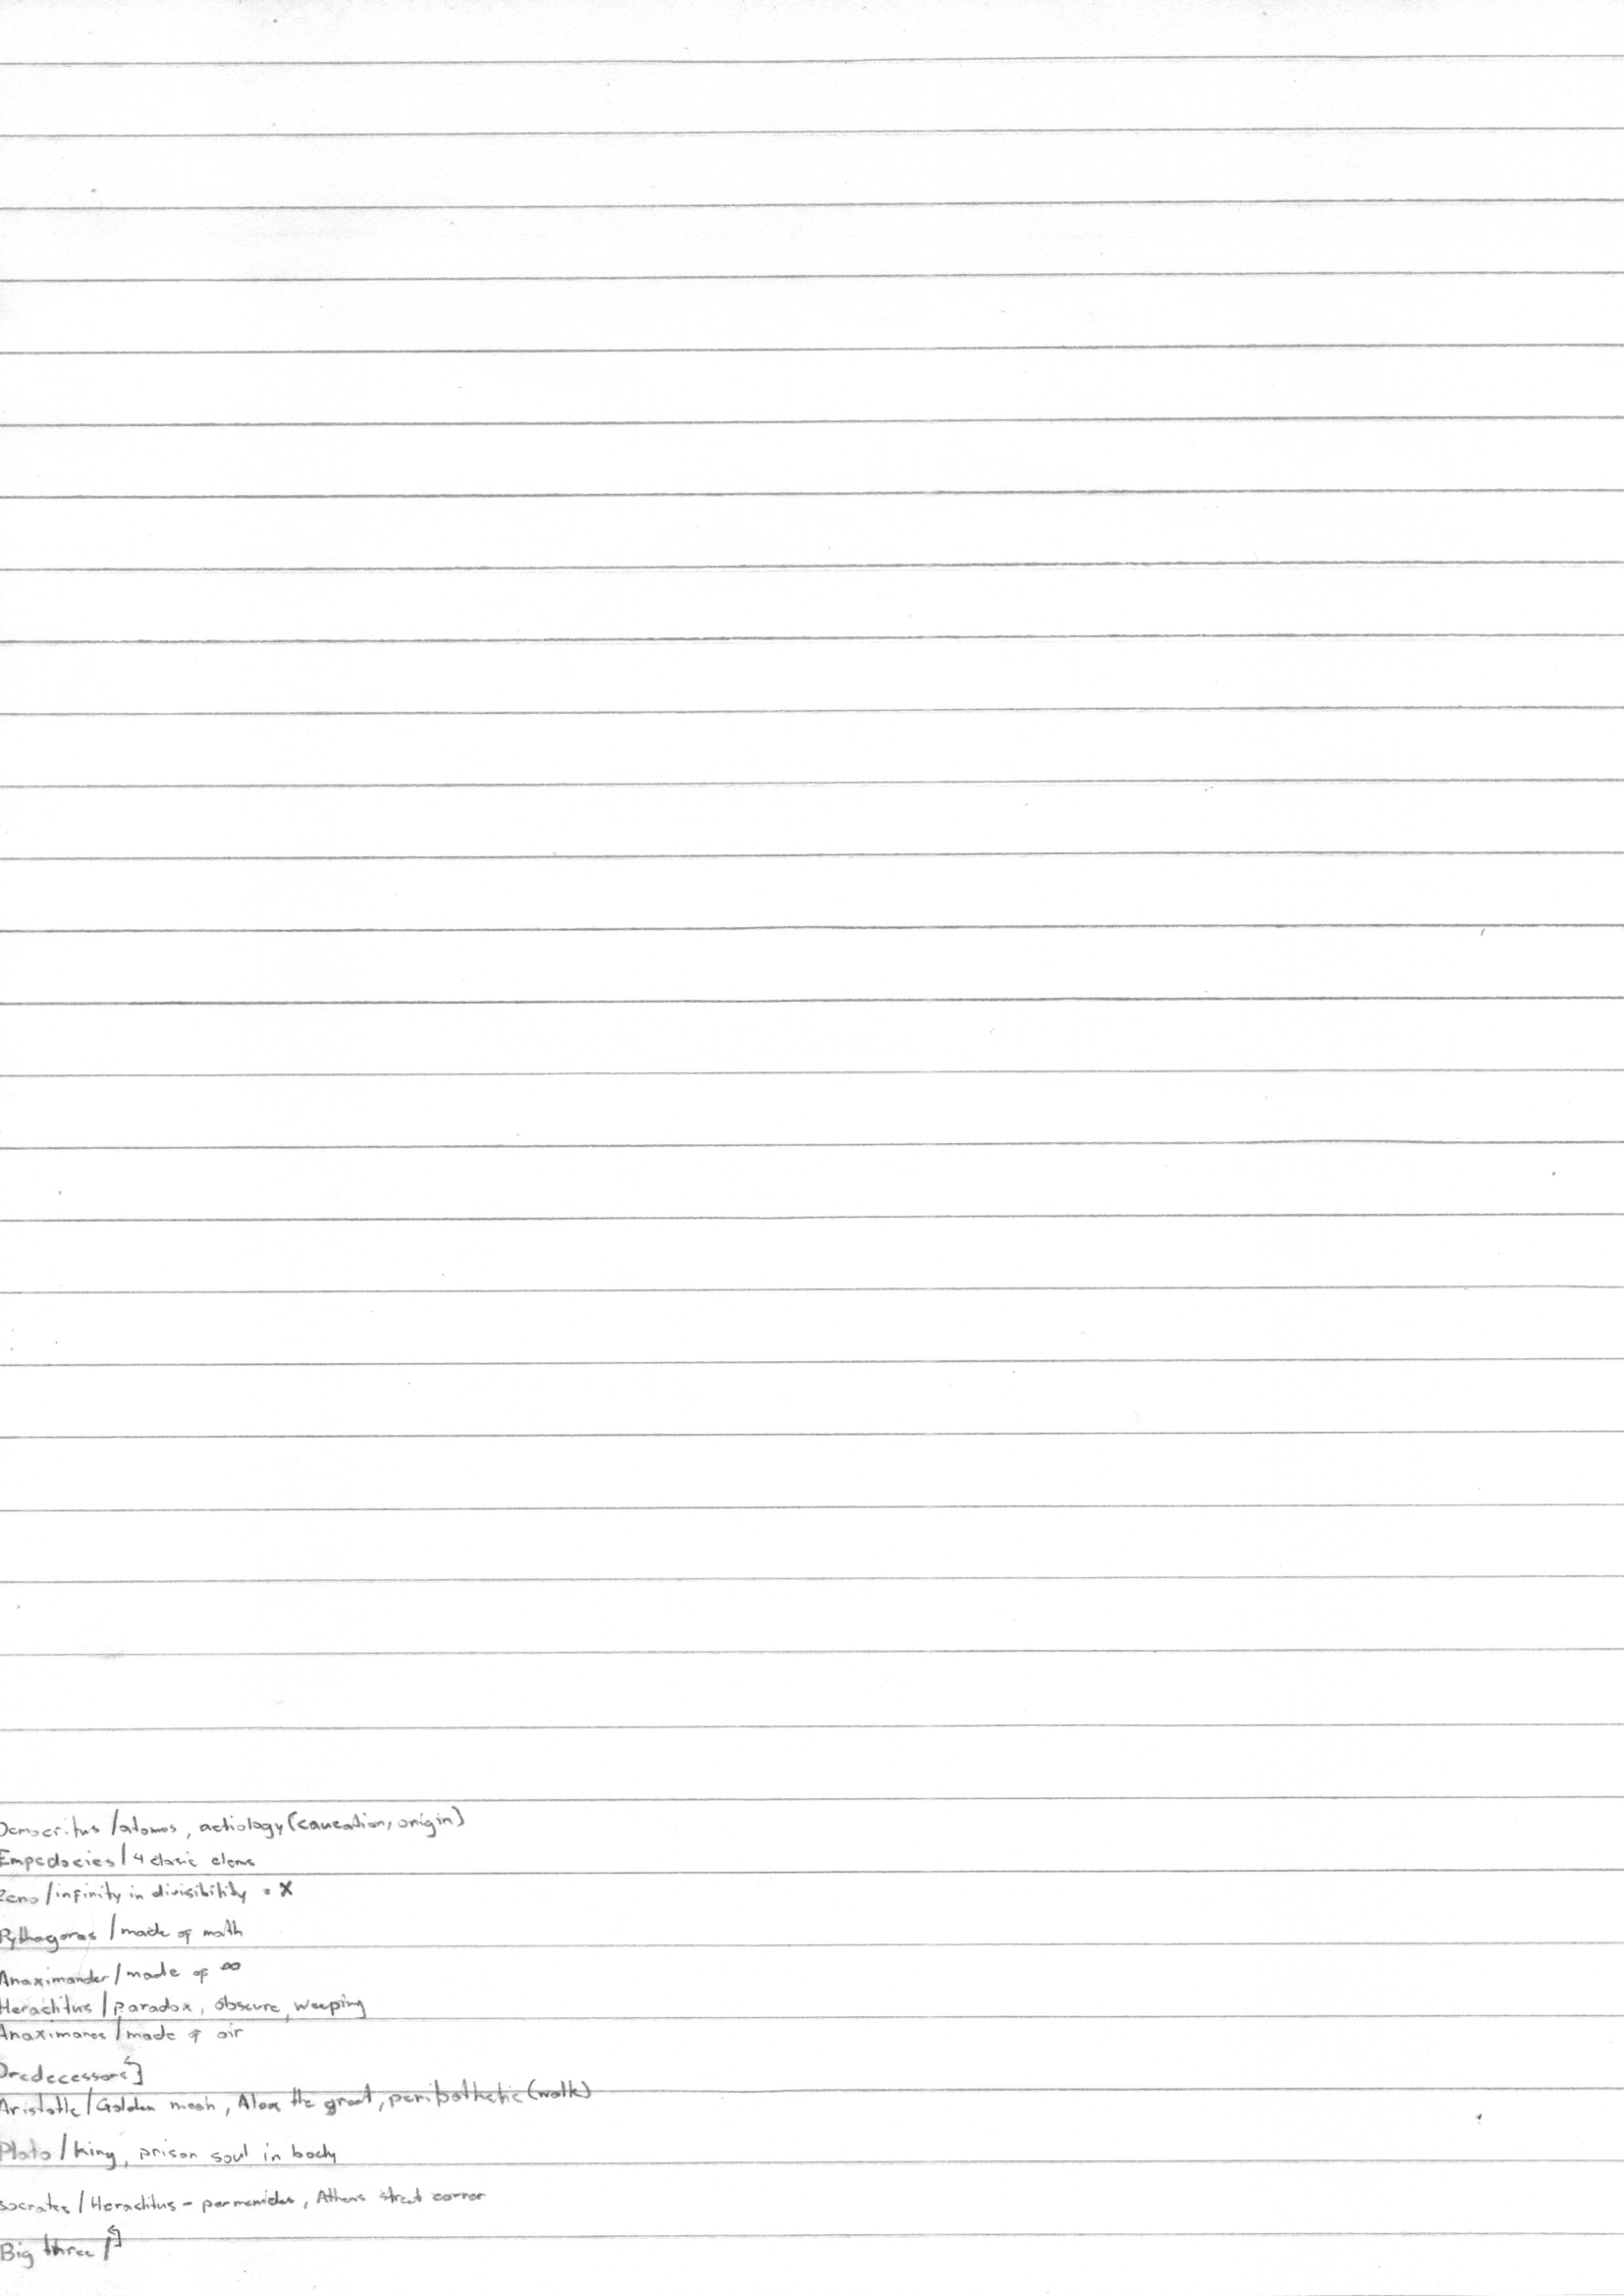 Democritus / atomos, aetiology (causation, origin)
Empedocies / 4 clasic elems
Zeno / infinity in divisibility = X
Pythagoras / made of math
Anaximander / made of ∞
Heraclitus / paradox, obscure, weeping
Anaximanes / made of air
Predecessors
Aristotle / Golden mean, Alex the great, peribathetic (walk)
Plato / king, prison soul in body
Socrates / Heraclitus - permenides, Athens street corner
Big three /